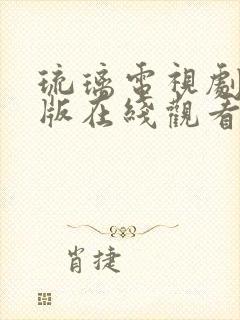 琉璃電視劇
版在綫觀看
肖捷